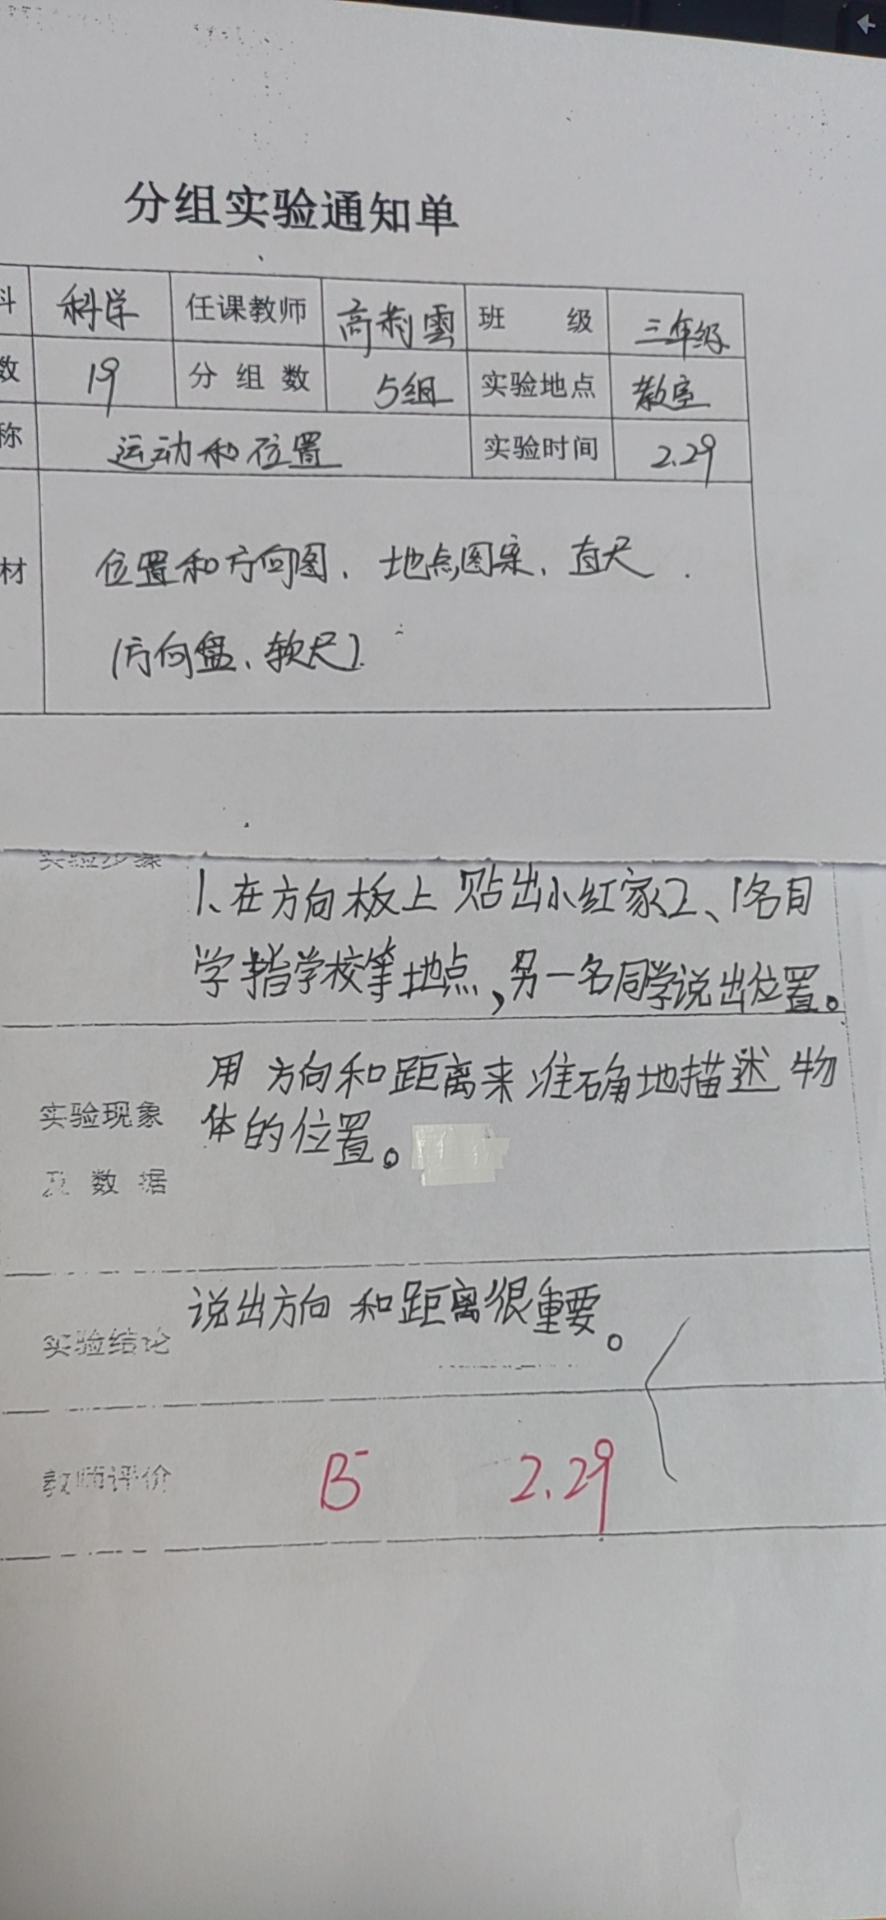 分组实验通知单
科 科学 任课教师 高利雲 班 级 三年级
数 19 分组数 5组 实验地点 教室
称 运动和位置 实验时间 2.29
材 位置和方向图、地点图案、直尺
(方向盘、软尺)
实验步骤
1、在方向板上贴出小红家2、1名同
学指学校等地点,另一名同学说出位置。
用方向和距离来准确地描述物
实验现象
体的位置。
及数据
说出方向和距离很重要。
实验结论
教师评价 B 2.29